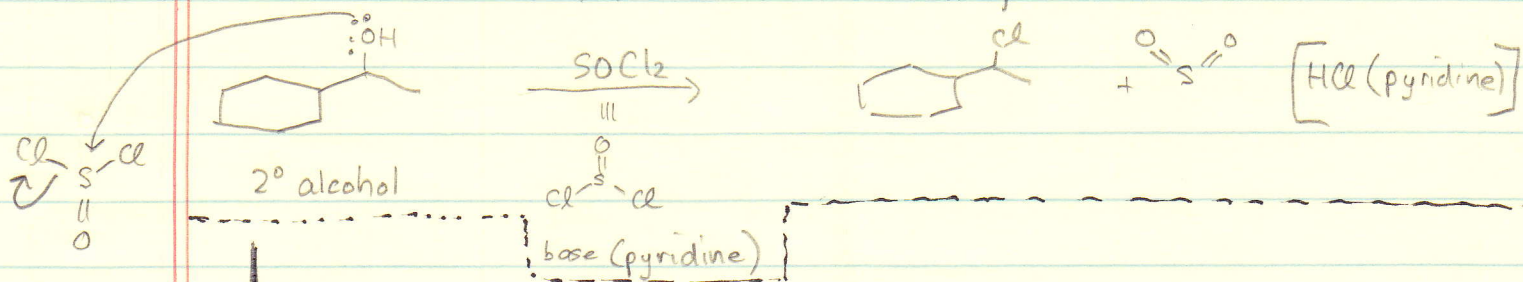 Cl
:ÖH
SOCl₂
O O
S
+
[HCl (pyridine)]
|||
O
Cl Cl
S
O
2° alcohol
S
Cl Cl
base (pyridine)